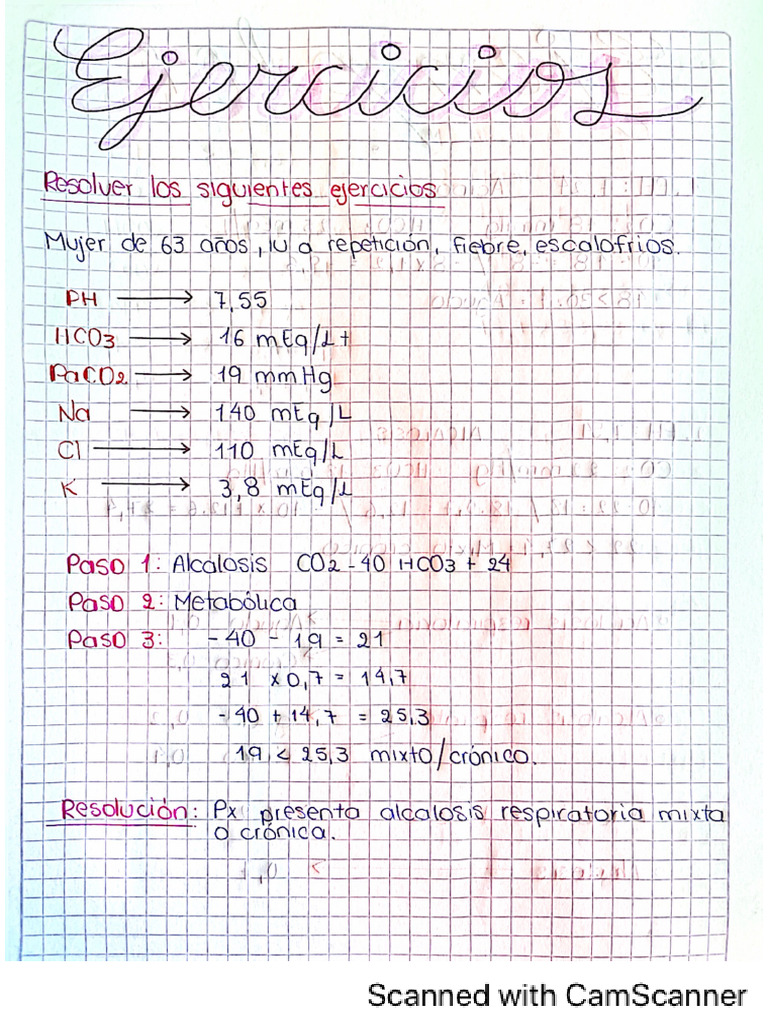 Ejercicios
Resolver los siguientes ejercicios
Mujer de 63 años, IU a repetición, fiebre, escalofríos.
PH → 7,55
HCO3 → 16 mEq/L+
PaCO2 → 19 mmHg
Na → 140 mEq/L
Cl → 110 mEq/L
K → 3,8 mEq/L
Paso 1: Alcalosis CO2 - 40 HCO3 + 24
Paso 2: Metabólica
Paso 3: - 40 - 19 = 21
21 x 0,7 = 14,7
- 40 + 14,7 = 25,3
19 < 25,3 mixto/crónico.
Resolución: Px presenta alcalosis respiratoria mixta
o crónica.
Scanned with CamScanner